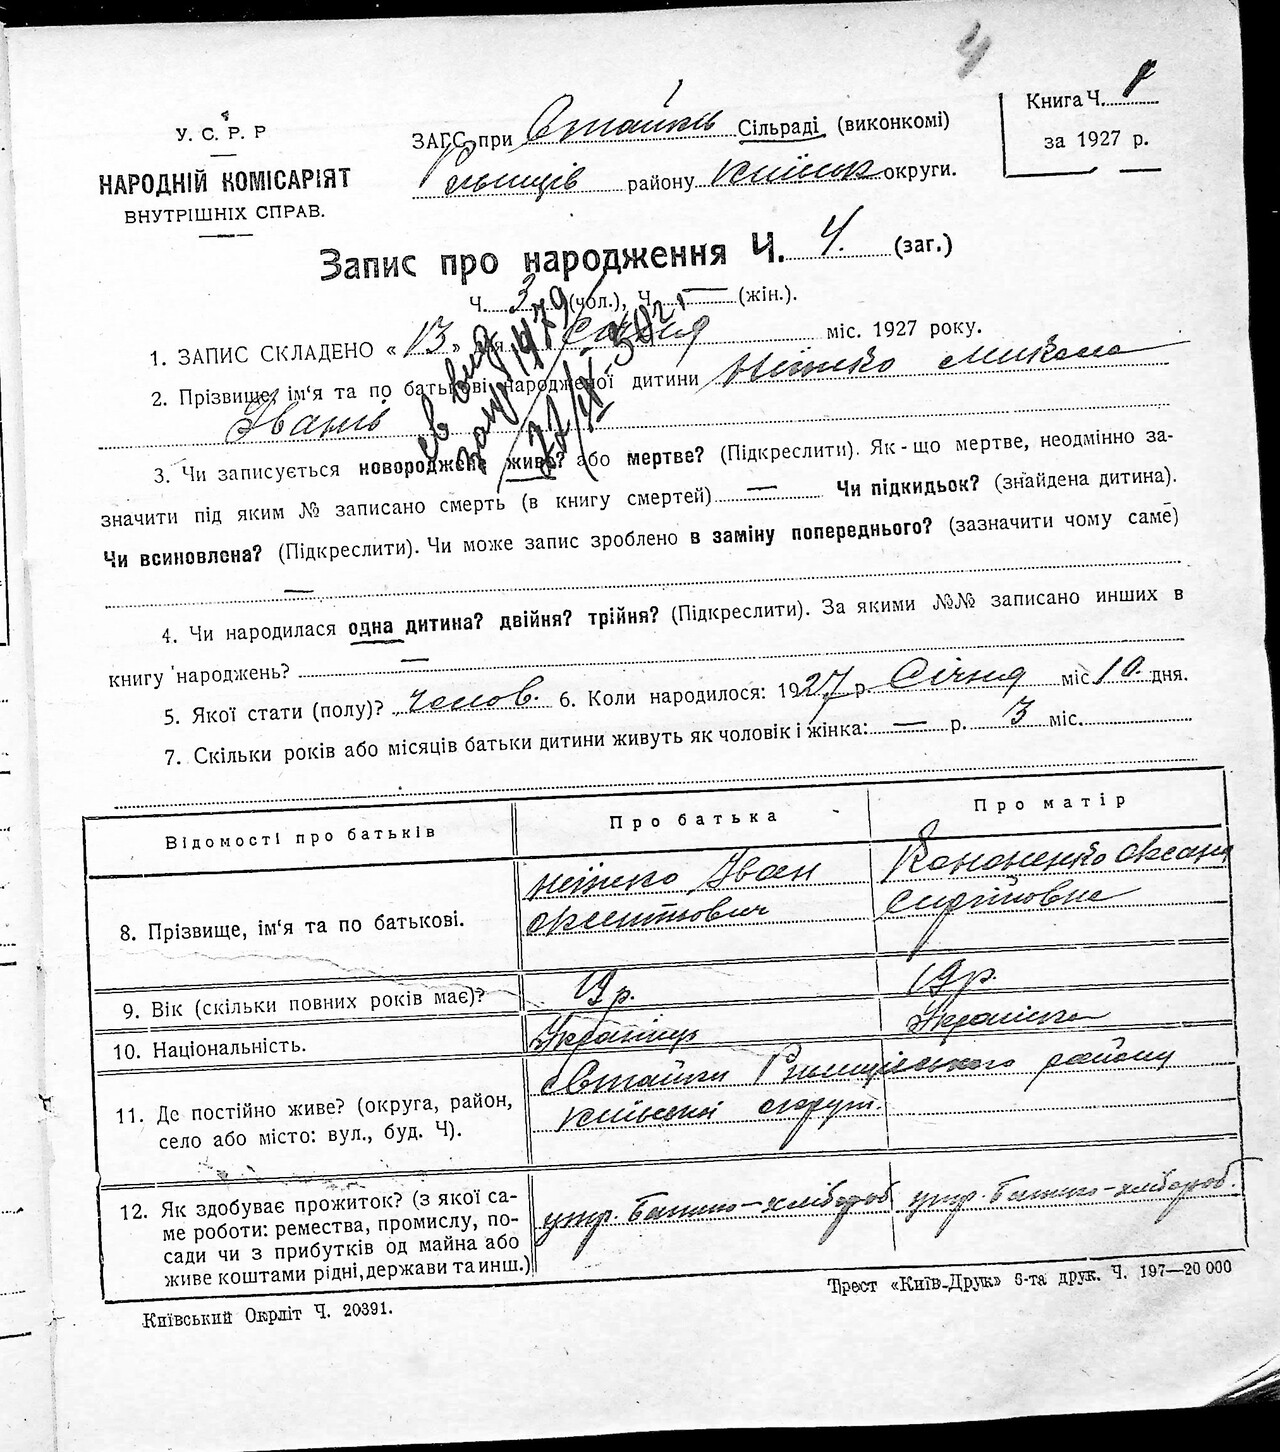 4
У. С. Р. Р
НАРОДНІЙ КОМІСАРІЯТ
ВНУТРІШНІХ СПРАВ.
ЗАГС при Стайки Сільраді (виконкомі)
Ржищів району Київськ округи.
Книга Ч. 1
за 1927 р.
Запис про народження Ч. 4. (заг.)
Ч. 3 (чол.), Ч. — (жін.).
1. ЗАПИС СКЛАДЕНО «13» дня Січня міс. 1927 року.
2. Прізвище, ім'я та по батькові народженої дитини Микола
Іванів
3. Чи записується новороджене живе? або мертве? (Підкреслити). Як-що мертве, неодмінно за-
значити під яким № записано смерть (в книгу смертей) — Чи підкидьок? (знайдена дитина).
Чи всиновлена? (Підкреслити). Чи може запис зроблено в заміну попереднього? (зазначити чому саме)
—
4. Чи народилася одна дитина? двійня? трійня? (Підкреслити). За якими №№ записано инших в
книгу народжень? —
5. Якої стати (полу)? чолов. 6. Коли народилося: 1927 р. Січня міс 10. дня.
7. Скільки років або місяців батьки дитини живуть як чоловік і жінка: — р. 3 міс.
Відомості про батьків
Про батька
Про матір
8. Прізвище, ім'я та по батькові.
Іван
Кононенко Оксана
Сиргійовна
9. Вік (скільки повних років має)?
19 р.
19 р.
10. Національність.
Українець
Українка
11. Де постійно живе? (округа, район,
село або місто: вул., буд. Ч).
с Стайки Ржищівського району
Київської округи.
12. Як здобуває прожиток? (з якої са-
ме роботи: ремества, промислу, по-
сади чи з прибутків од майна або
живе коштами рідні, держави та инш.)
утр. батько-хлібороб
утр. батько-хлібороб.
Київський Окрліт Ч. 20391.
Трест «Київ-Друк» 6-та друк. Ч. 197—20 000